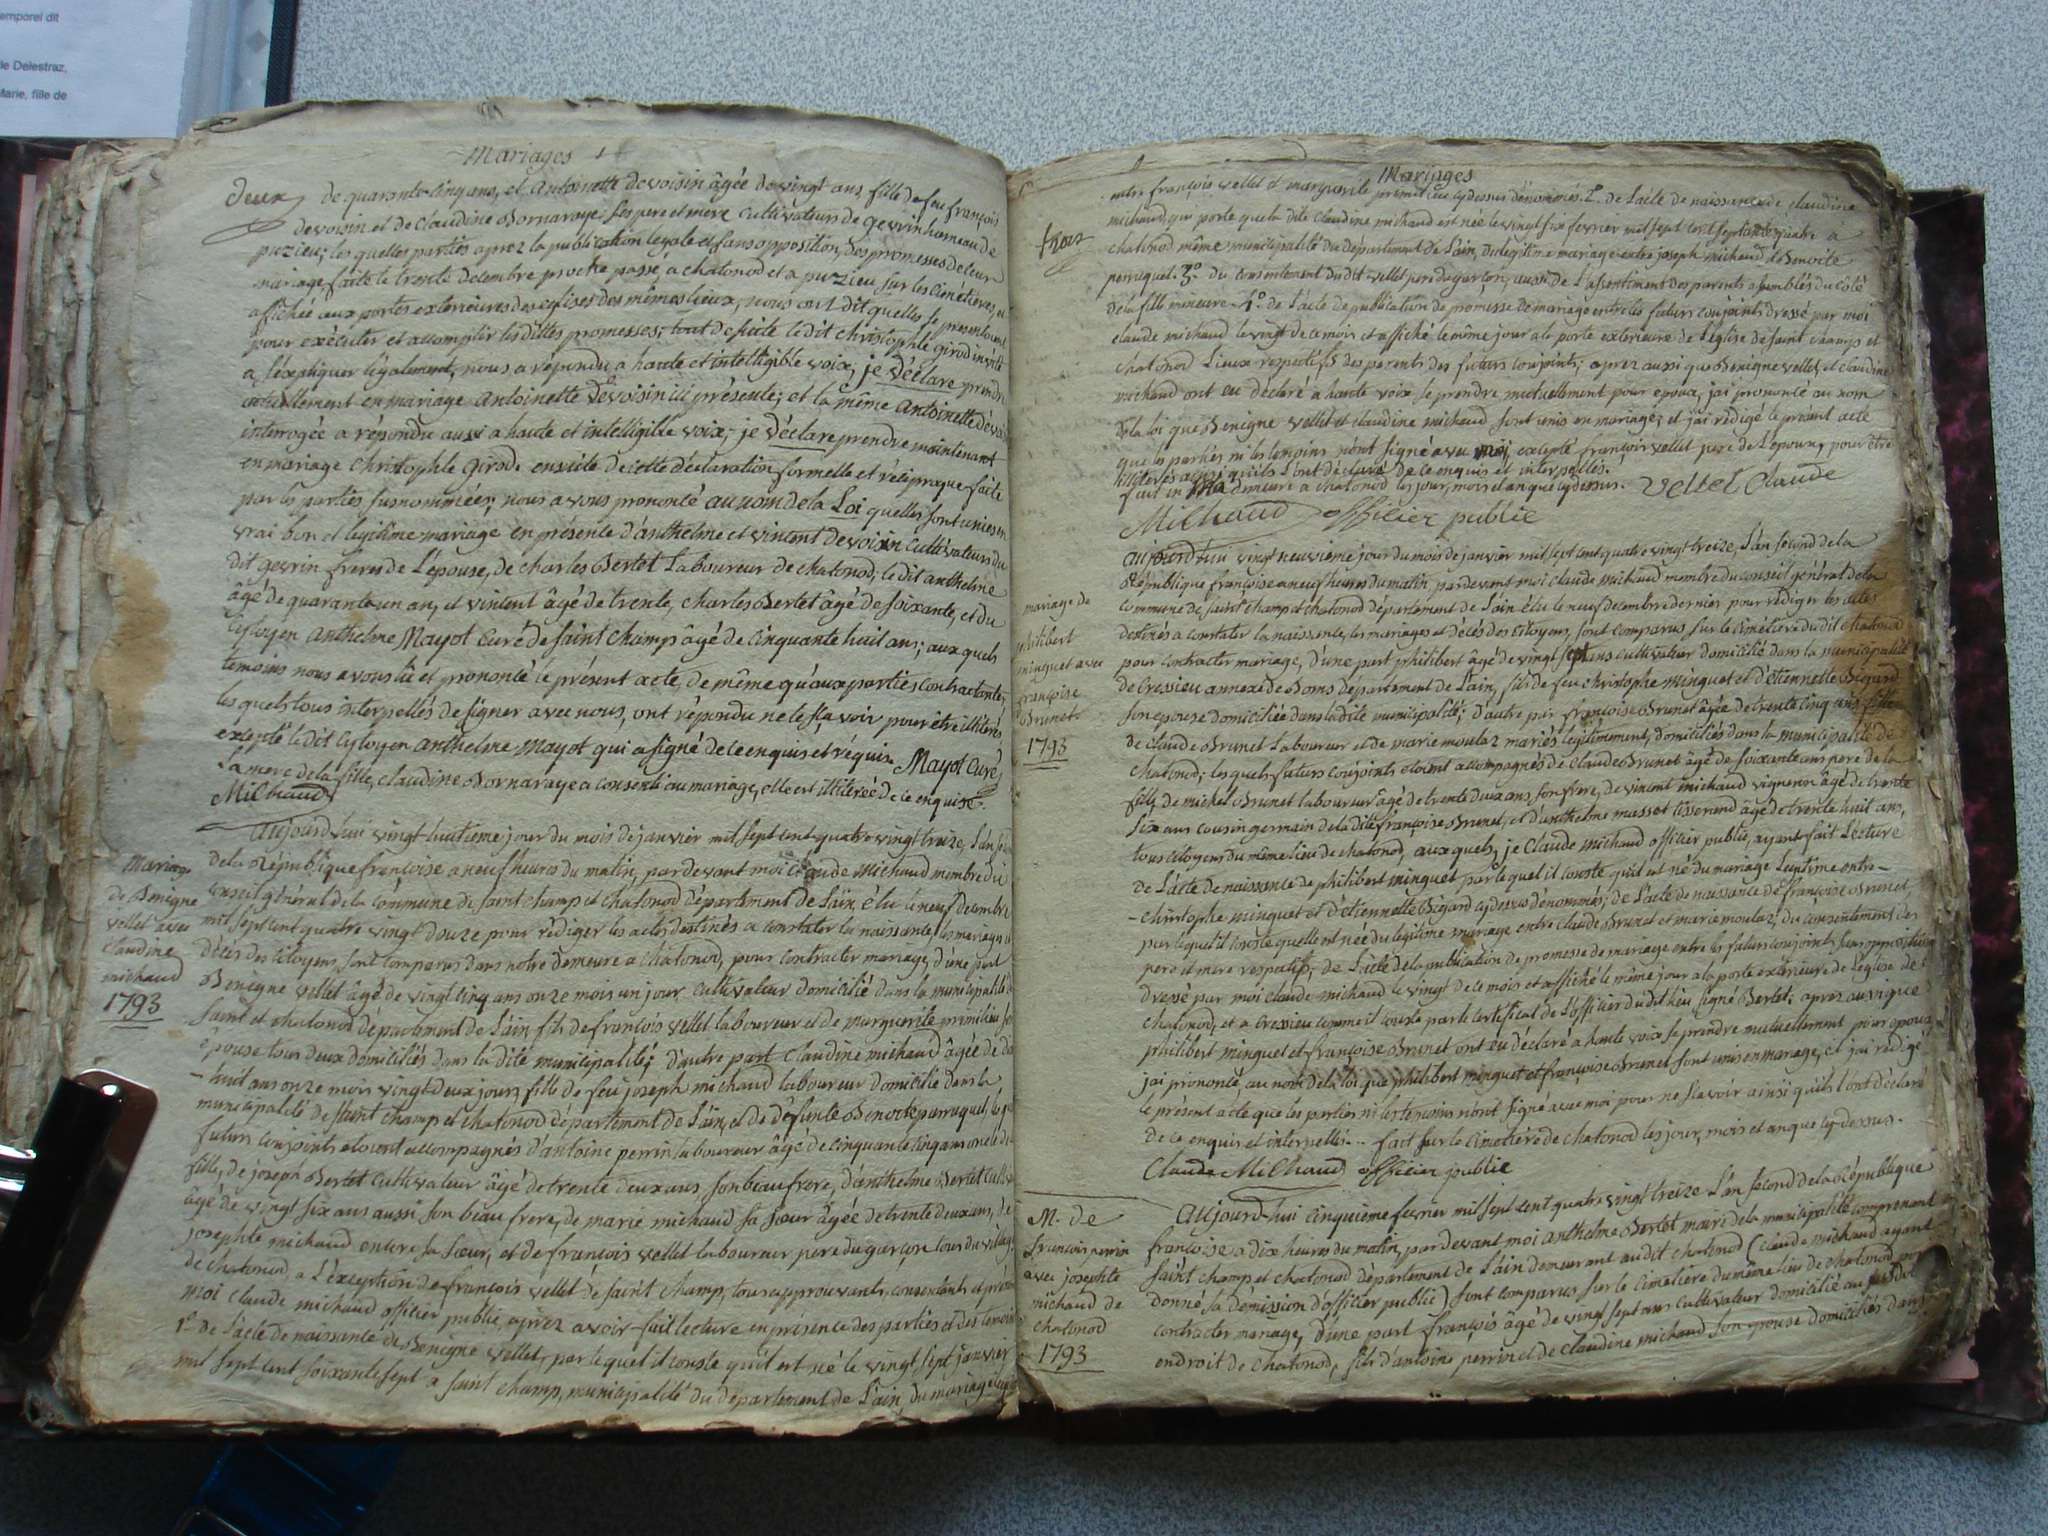 emporel dit
de Delestraz,
Marie, fille de
Mariages
deux
de quarante cinq ans, et antoinette devoisin âgée de vingt ans, fille de feu françois
devoisin et de claudine Bornaraye ses pere et mere cultivateurs de gevrin hameau de
puzieu; les quelles parties aprez la publication legale et sans opposition, des promesses de leur
mariage, faite le trente decembre proche passé, a chatonod et a puzieu sur les cimétieres, et
affichée aux portes exterieures des eglises des mêmes lieux, nous ont dit quelles se presentoient
pour exécuter et accomplir les dittes promesses; tout de suite le dit christophle girod invité
a s'expliquer légalement, nous a répondu a haute et intelligible voix, je déclare prendre
actuellement en mariage antoinette devoisin ici présente; et la même antoinette devoisin
interrogée a répondu aussi a haute et intelligible voix; je déclare prendre maintenant
en mariage christophle girod. ensuite de cette déclaration formelle et réciproque faite
par les parties susnommées; nous avons prononcé au nom de la Loi quelles sont unies en
vrai bon et legitime mariage en présence d'anthelme et vincent devoisin cultivateurs du
dit gevrin freres de l'épouse, de charles Bertet Laboureur de chatonod; le dit anthelme
âgé de quarante un ans, et vincent âgé de trente, charles Bertet âgé de soixante, et du
cytoyen anthelme Mayot curé de saint champ âgé de cinquante huit ans; aux quels
temoins nous avons lû et prononcé le présent acte, de même qu'aux parties contractantes,
les quels tous interpellés de signer avec nous, ont répondu ne le sçavoir pour être illiterés
excepté le dit cytoyen anthelme mayot qui a signé de ce enquis et réquis. Mayot curé
La mere de la fille, claudine Bornaraye a consenti au mariage, elle est illiterée de ce enquise.
Michaud
mariage
de Benigne
vellet avec
claudine
michaud
1793
aujourd'hui vingt huitieme jour du mois de janvier mil sept cent quatre vingt treize, l'an
de la République françoise a neuf heures du matin, par devant moi claude michaud membre du
conseil général de la commune de saint champ et chatonod département de l'ain, élu le neuf decembre
mil sept cent quatre vingt douze pour rédiger les actes destinés a constater la naissance, les mariages et
décès des citoyens, sont comparus dans notre demeure a chatonod, pour contracter mariage, d'une part
Benigne vellet âgé de vingt cinq ans onze mois un jour cultivateur domicilié dans la municipalité de
saint et chatonod département de l'ain fils de françois vellet laboureur et de marguerite
épouse tous deux domiciliés dans la dite municipalité; d'autre part claudine michaud âgée de dix
- huit ans onze mois vingt deux jours, fille de feu joseph michaud laboureur domicilié dans la
municipalité de saint champ et chatonod département de l'ain, et de défunte Benoite perruquet, les
futurs conjoints étoient accompagnés d'antoine perrin laboureur âgé de cinquante cinq ans oncle de
fille, de joseph Bertet cultivateur âgé de trente deux ans son beau frere, d'anthelme Bertet
âgé de vingt six ans aussi son beau frere, de marie michaud sa sœur âgée de trente deux ans, de
josephte michaud encore sa sœur, et de françois vellet laboureur pere du garçon tous du village
de chatonod, a l'exception de françois vellet de saint champ, tous approuvants, consentants et
moi claude michaud officier public, aprez avoir fait lecture en présence des parties et des temoins
1° de l'acte de naissance de Benigne vellet, par lequel il conste qu'il est né le vingt sept janvier
mil sept cent soixante sept a saint champ, municipalité du département de l'ain, du mariage
Mariages
trois
entre françois vellet et marguerite cy dessus dénommés. 2° de l'acte de naissance de claudine
michaud, qui porte que la dite claudine michaud est née le vingt six fevrier mil sept cent septante quatre a
chatonod même municipalité du département de l'ain, du legitime mariage entre joseph michaud et Benoite
perruquet. 3° du consentement du dit vellet pere du garçon; aussi de l'assentiment des parents assemblés du côté
de la fille mineure. 4° de l'acte de publication de promesse de mariage entre les futurs conjoints dressé par moi
claude michaud le vingt de ce mois et affiché le même jour a la porte exterieure de l'eglise de saint champ et
chatonod Lieux respectifs des parents des futurs conjoints; aprez aussi que Benigne vellet et claudine
michaud ont eu déclaré a haute voix se prendre mutuellement pour epoux, j'ai prononcé au nom
de la loi que Benigne vellet et claudine michaud sont unis en mariage; et j'ai rédigé le présent acte
que les parties ni les temoins n'ont signé avec moi, excepté françois vellet pere de l'epoux, pour être
illiterés ainsi qu'ils l'ont déclaré de ce enquis et interpellés.
fait en ma demeure a chatonod les jour, mois et an que cy dessus. Vellet Claude
Michaud officier public
mariage de
philibert
minguet avec
françoise
Brunet
1793
aujourd'hui vingt neuvieme jour du mois de janvier mil sept cent quatre vingt treize, l'an second de la
République françoise a neuf heures du matin, par devant moi claude michaud membre du conseil général de la
commune de saint champ et chatonod département de l'ain élu le neuf decembre dernier pour rédiger les actes
destinés a constater la naissance, les mariages et décès des citoyens, sont comparus sur le cimetiere du dit chatonod
pour contracter mariage, d'une part philibert âgé de vingt sept ans cultivateur domicilié dans la municipalité
de cressieu annexe de Bons département de l'ain, fils de feu christophe minguet et d'étiennette Bigard
son epouse domiciliée dans la dite municipalité; d'autre part françoise Brunet âgée de trente cinq ans fille
de claude Brunet Laboureur et de marie moulaz mariés legitimement, domiciliés dans la municipalité de
chatonod; les quels futurs conjoints étoient accompagnés de claude Brunet âgé de soixante ans pere de la
fille, de michel Brunet laboureur âgé de trente deux ans son frere, de vincent michaud vigneron âgé de trente
six ans cousin germain de la dite françoise Brunet, et d'anthelme masset tisserand âgé de trente huit ans,
tous citoyens du même lieu de chatonod, aux quels, je claude michaud officier public, ayant fait lecture
de l'acte de naissance de philibert minguet par lequel il conste qu'il est né du mariage legitime entre
- christophe minguet et d'étiennette Bigard cy dessus dénommés; de l'acte de naissance de françoise Brunet,
par lequel il conste quelle est née du legitime mariage entre claude Brunet et marie moulaz; du consentement des
pere et mere respectifs; de l'acte de la publication de promesse de mariage entre les futurs conjoints sans opposition
dressé par moi claude michaud le vingt de ce mois et affiché le même jour a la porte exterieure de l'eglise de
chatonod, et a cressieu comme il conste par le certificat de l'officier du dit lieu, signé Bertet; aprez aussi que
philibert minguet et françoise Brunet ont eu déclaré a haute voix se prendre mutuellement pour epoux
j'ai prononcé, au nom de la loi que philibert minguet et françoise Brunet sont unis en mariage, et j'ai rédigé
le présent acte que les parties ni les temoins n'ont signé avec moi pour ne sçavoir ainsi qu'ils l'ont déclaré
de ce enquis et interpellés... fait sur le cimetiére de chatonod les jour, mois et an que cy dessus.
Claude Michaud officier public
M. de
françois perrin
avec josephte
michaud de
chatonod
1793
aujourd'hui cinquieme fevrier mil sept cent quatre vingt treize l'an second de la République
françoise a dix heures du matin, par devant moi anthelme Bertet maire de la municipalité comprenant
saint champ et chatonod département de l'ain demeurant au dit chatonod (claude michaud ayant
donné sa démission d'officier public) sont comparus sur le cimetiere du même lieu de chatonod pour
contracter mariage, d'une part françois âgé de vingt sept ans cultivateur domicilié au susdit
endroit de chatonod, fils d'antoine perrin et de claudine michaud son epouse domiciliés dans